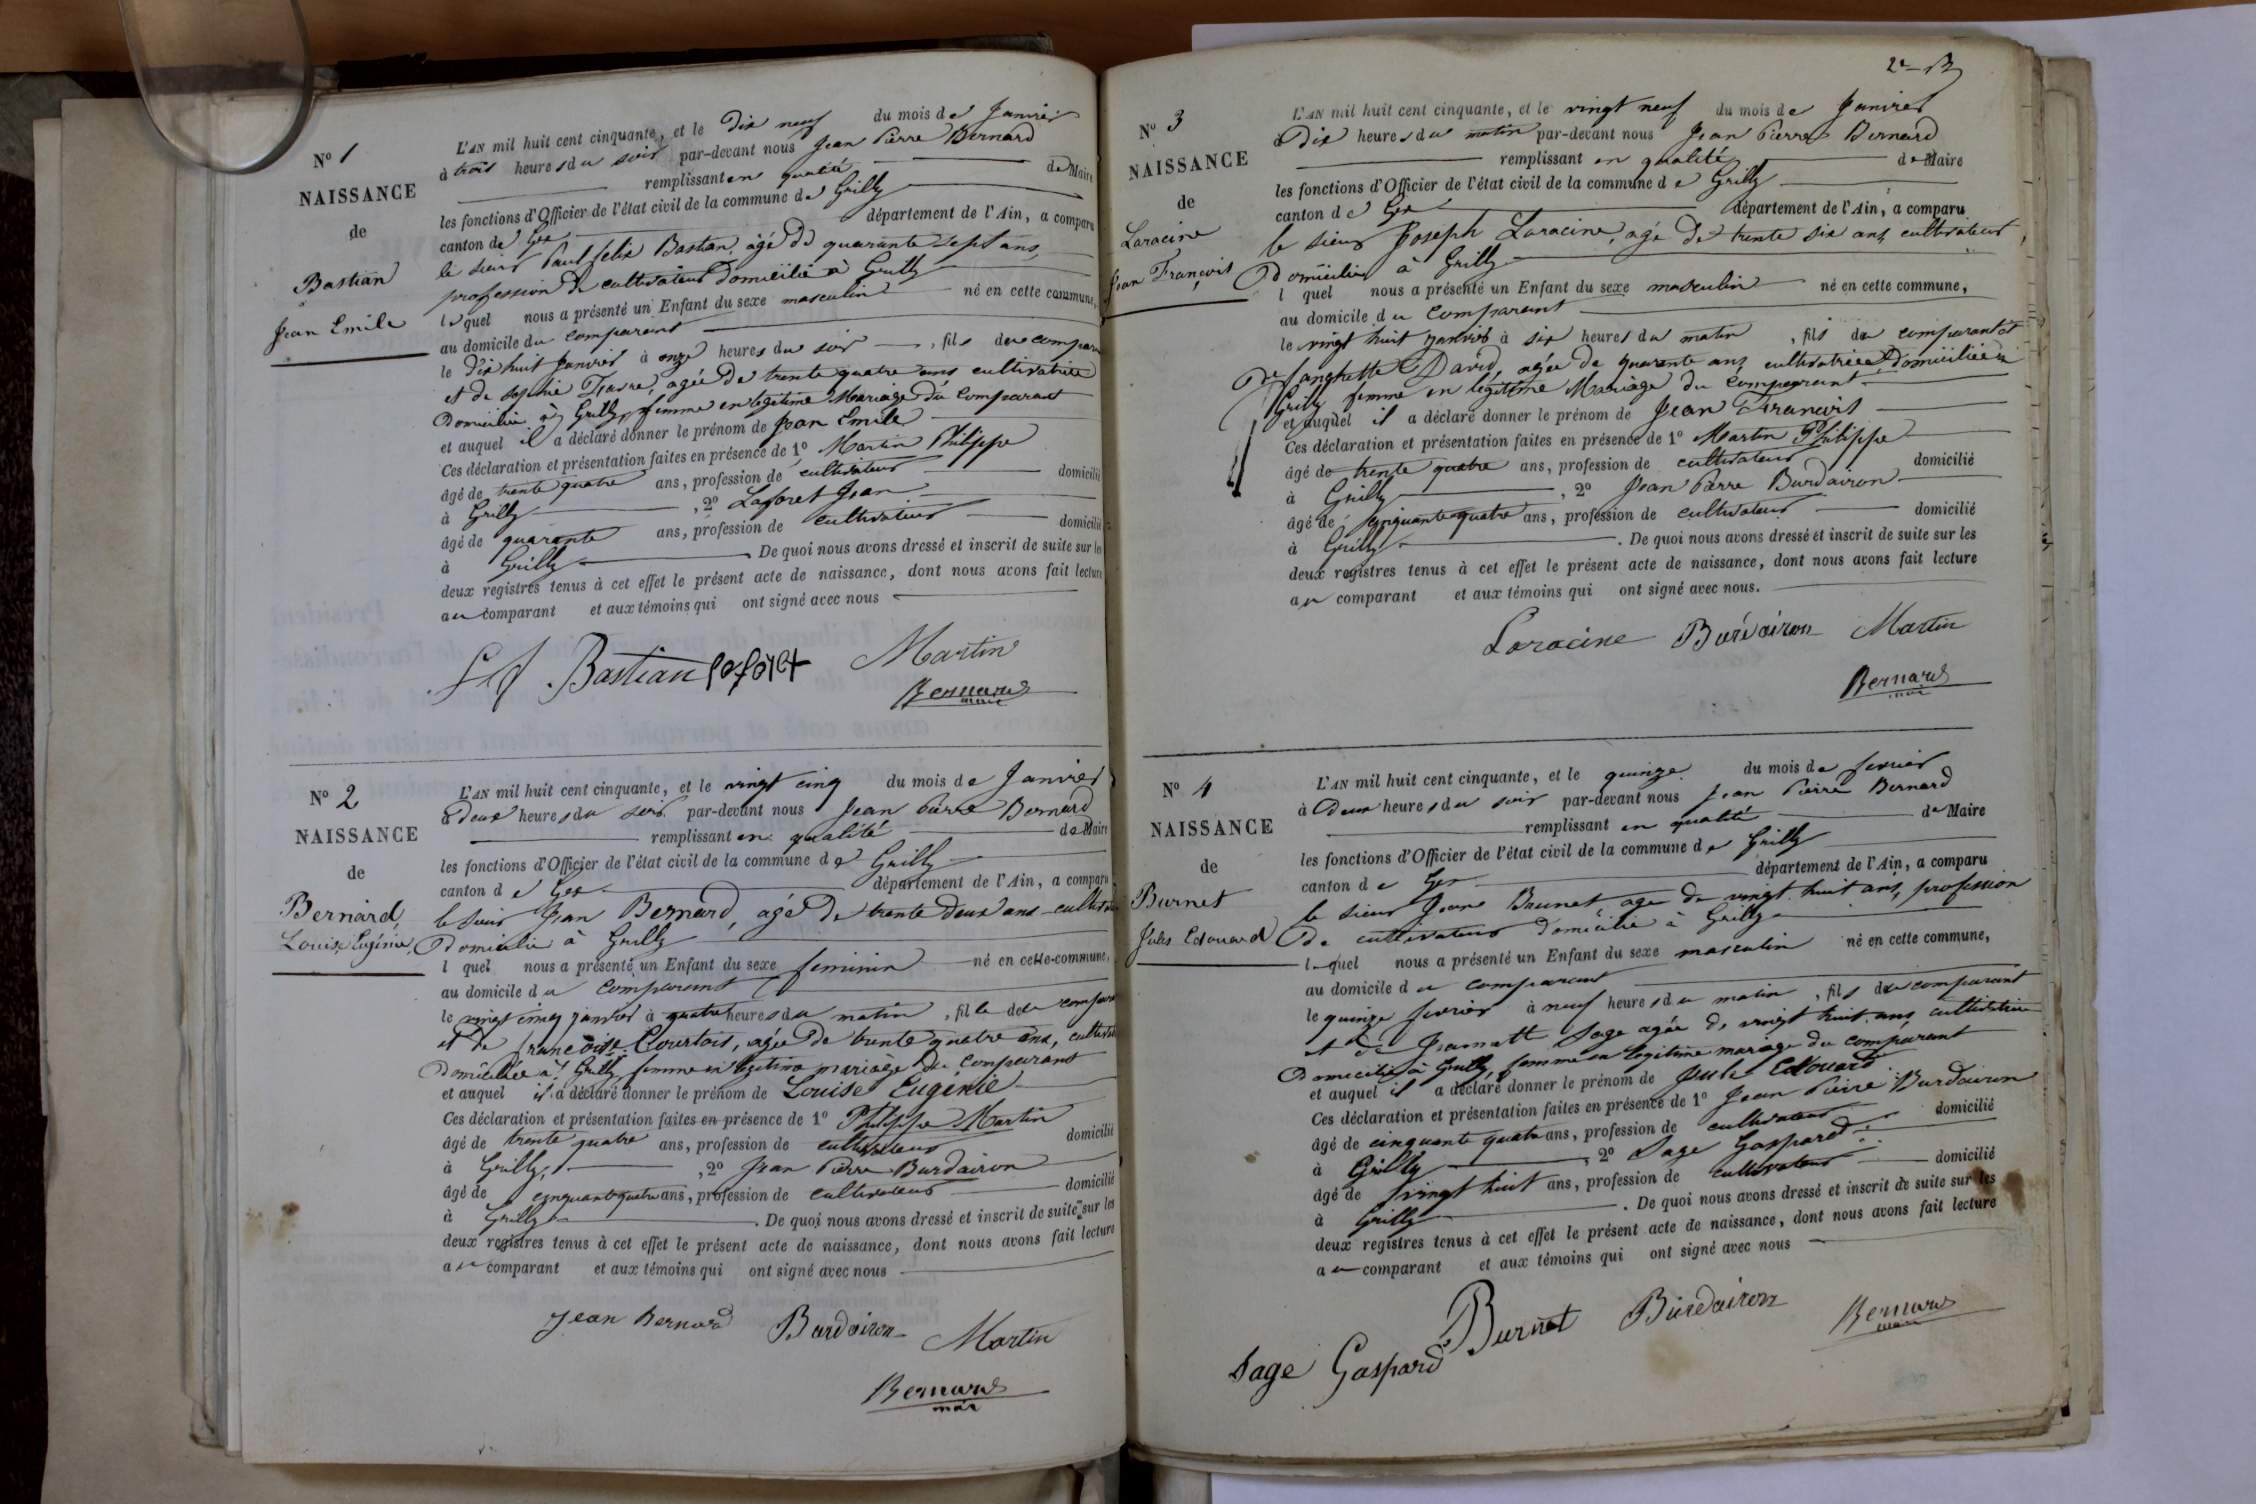 N° 1
NAISSANCE
de
Bastian
Jean Emile
L'AN mil huit cent cinquante, et le dix neuf du mois de Janvier
à trois heures du soir par-devant nous Jean Pierre Bernard
remplissant en qualité de Maire
les fonctions d'Officier de l'état civil de la commune de Grilly
canton de Gex département de l'Ain, a comparu
le sieur Paul felix Bastian, âgé de quarante sept ans,
profession de cultivateur domicilié à Grilly
lequel nous a présenté un Enfant du sexe masculin né en cette commune,
au domicile du comparant
le dix huit Janvier à onze heures du soir, fils du compara
et de sophie, agée de trente quatre ans cultivatrice
Domiciliée à Grilly, femme en legitime Mariage du Comparant
et auquel il a déclaré donner le prénom de Jean Emile
Ces déclaration et présentation faites en présence de 1° Martin Philippe
âgé de trente quatre ans, profession de cultivateur domicilié
à Grilly, 2° Laforet Jean
âgé de quarante ans, profession de cultivateur domicilié
à Grilly. De quoi nous avons dressé et inscrit de suite sur les
deux registres tenus à cet effet le présent acte de naissance, dont nous avons fait lecture
au comparant et aux témoins qui ont signé avec nous
Bastian laforet Martin
Bernard
maire
N° 2
NAISSANCE
de
Bernard,
Louise Eugénie,
L'AN mil huit cent cinquante, et le vingt cinq du mois de Janvier
à Deux heures du soir par-devant nous Jean Pierre Bernard
remplissant en qualité de Maire
les fonctions d'Officier de l'état civil de la commune de Grilly
canton de Gex département de l'Ain, a comparu
le sieur Jean Bernard, agé de trente deux ans cultiva
domicilié à Grilly
l quel nous a présenté un Enfant du sexe feminin né en cette commune,
au domicile du comparant
le vingt cinq janvier à quatre heures du matin, fille de du compara
et de francoise Courtois, agée de trente quatre ans, cultiva
Domiciliée à Grilly, femme en legitime mariage du Comparant
et auquel il a déclaré donner le prénom de Louise Eugénie
Ces déclaration et présentation faites en présence de 1° Philippe Martin
âgé de trente quatre ans, profession de cultivateur domicilié
à Grilly, 2° Jean Pierre Burdairon
âgé de cinquante quatre ans, profession de cultivateur domicilié
à Grilly. De quoi nous avons dressé et inscrit de suite sur les
deux registres tenus à cet effet le présent acte de naissance, dont nous avons fait lecture
au comparant et aux témoins qui ont signé avec nous
Jean Bernard Burdairon Martin
Bernard
maire
N° 3
NAISSANCE
de
Laracine
Jean François
L'AN mil huit cent cinquante, et le vingt neuf du mois de Janvier
à Dix heures du matin par-devant nous Jean Pierre Bernard
remplissant en qualité de Maire
les fonctions d'Officier de l'état civil de la commune de Grilly
canton de Gex département de l'Ain, a comparu
le sieur Joseph Laracine, agé de trente six ans cultivateur,
Domicilié à Grilly
l quel nous a présenté un Enfant du sexe masculin né en cette commune,
au domicile du comparant
le vingt huit janvier à six heures du matin, fils du comparant et
De fanchette David, agée de quarante ans, cultivatrice, domiciliée à
Grilly femme en légitime Mariage du Comparant
et auquel il a déclaré donner le prénom de Jean François
Ces déclaration et présentation faites en présence de 1° Martin Philippe
âgé de trente quatre ans, profession de cultivateur domicilié
à Grilly, 2° Jean Pierre Burdairon
âgé de cinquante quatre ans, profession de cultivateur domicilié
à Grilly. De quoi nous avons dressé et inscrit de suite sur les
deux registres tenus à cet effet le présent acte de naissance, dont nous avons fait lecture
au comparant et aux témoins qui ont signé avec nous.
Laracine Burdairon Martin
Bernard
maire
N° 4
NAISSANCE
de
Burnet
Jules Edouard
L'AN mil huit cent cinquante, et le quinze du mois de fevrier
à Deux heures du soir par-devant nous Jean Pierre Bernard
remplissant en qualité de Maire
les fonctions d'Officier de l'état civil de la commune de Grilly
canton de Gex département de l'Ain, a comparu
le sieur Jean Brunet age de vingt huit ans, profession
De cultivateur domicilié à Grilly
lequel nous a présenté un Enfant du sexe masculin né en cette commune,
au domicile du comparant
le quinze fevrier à neuf heures du matin, fils du comparant
et de Sage agée de vingt huit ans, cultivatrice
Domiciliée à Grilly, femme en legitime mariage du comparant
et auquel il a déclaré donner le prénom de Jule Edouard
Ces déclaration et présentation faites en présence de 1° Jean Pierre Burdairon
âgé de cinquante quatre ans, profession de cultivateur domicilié
à Grilly, 2° Sage Gaspard
âgé de vingt huit ans, profession de cultivateur domicilié
à Grilly. De quoi nous avons dressé et inscrit de suite sur les
deux registres tenus à cet effet le présent acte de naissance, dont nous avons fait lecture
au comparant et aux témoins qui ont signé avec nous
Burnet Burdairon Bernard
maire
Sage Gaspard